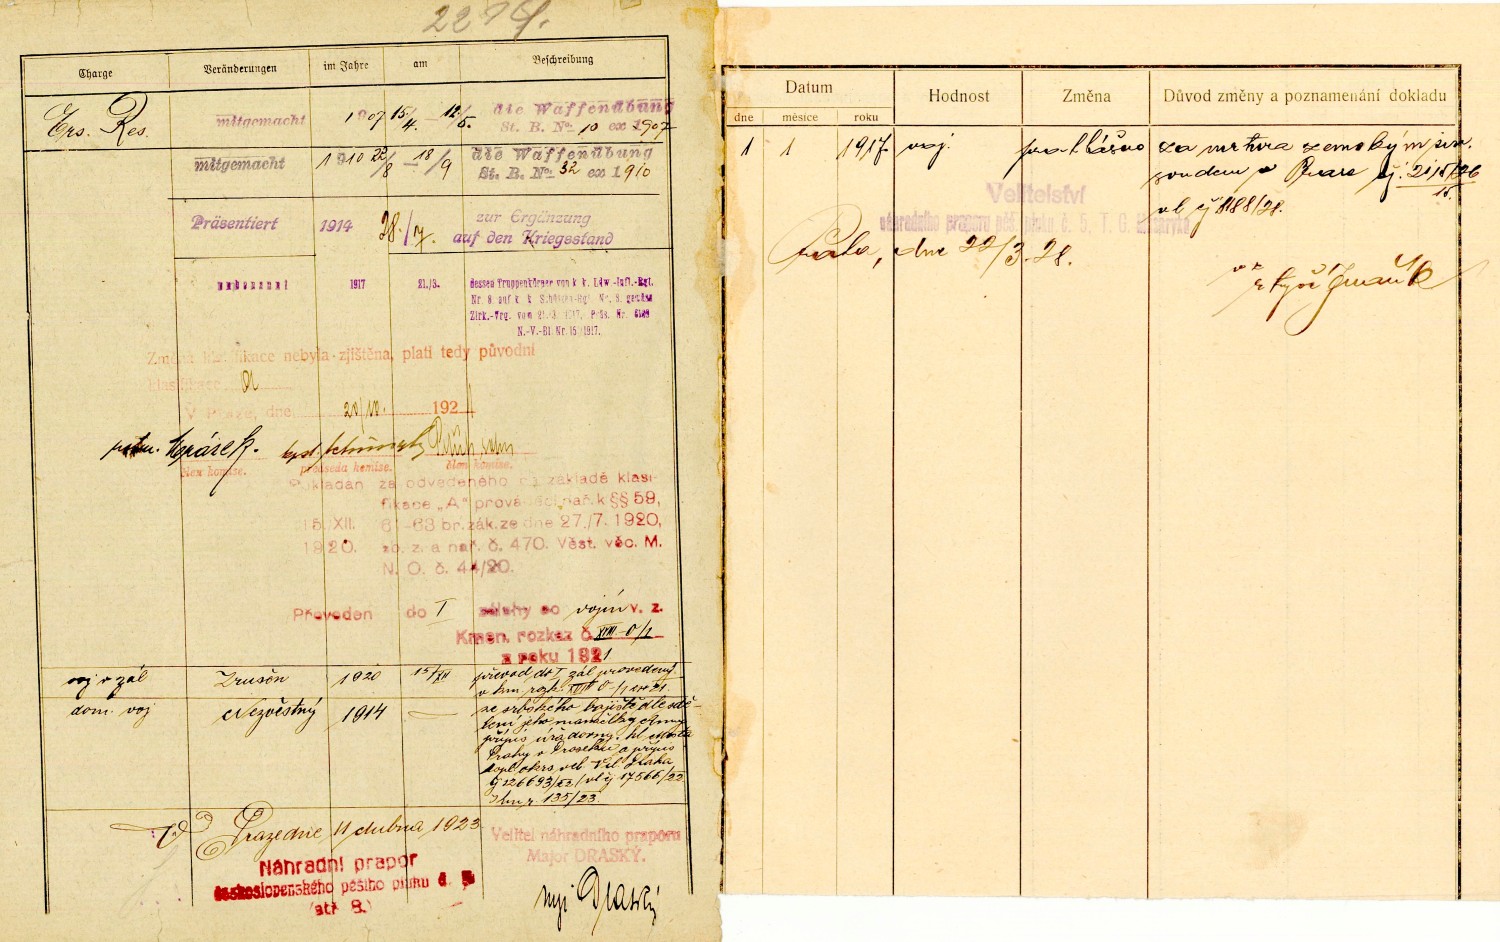 Charge Veränderungen im Jahre am Beschreibung
Ers. Res. mitgemacht 1907 15/4. – 12/5. die Waffenübung
St. B. No. 10 ex 1907
mitgemacht 1910 22/8 – 18/9 die Waffenübung
St. B. No. 32 ex 1910
Präsentiert 1914 28./7. zur Ergänzung
auf den Kriegsstand
1917 21./3. dessen Truppenkörper von k. k. Ldw.-Inft.-Rgt.
Nr. 8 auf k. k. Schützen-Rgt. Nr. 8 gemäss
Zirk.-Vrg. vom 21./3. 1917. Präs. Nr.
N.-V.-Bl. Nr. 15/1917.
Změna klasifikace nebyla zjištěna, plati tedy původni
klasifikace A
V Praze, dne 20/10. 1921
člen komise. předseda komise. člen komise.
Pokládán za odvedeného na základě klasi-
fikace „A" prováděcí nař. k §§ 59,
15./XII. 61–63 br. zák. ze dne 27./7. 1920,
1920. sb. z. a nař. č. 470. Věst. věc. M.
N. O. č. 44/20.
Převeden do I zálohy co vojín v. z.
Kmen. rozkaz č. XVIII-0/1
z roku 1921
voj v zál Zrušen 1920 15/XII převod do I. zál provedený
dom. voj Nezvěstný 1914 — ze srbského bojiště dle sdě-
lení jeho manželky Anny
Prahy v Proseku a přípis
č 126693/22 / vl čj 17566/22
135/23.
V Praze dne 11 dubna 1923
Velitel náhradního praporu
Major DRASKÝ.
Náhradní prapor
československého pěšího pluku č. 5
(stř 8.)
mjr Draský
Datum Hodnost Změna Důvod změny a poznamenání dokladu
dne měsíce roku
1 1 1917 voj. prohlášen za mrtva zemským civ.
soudem v Praze čj.
vl. čj 8188/28.
Velitelství
náhradního praporu pěš. pluku č. 5, T. G. Masaryka
Praha, dne 22/3. 28.